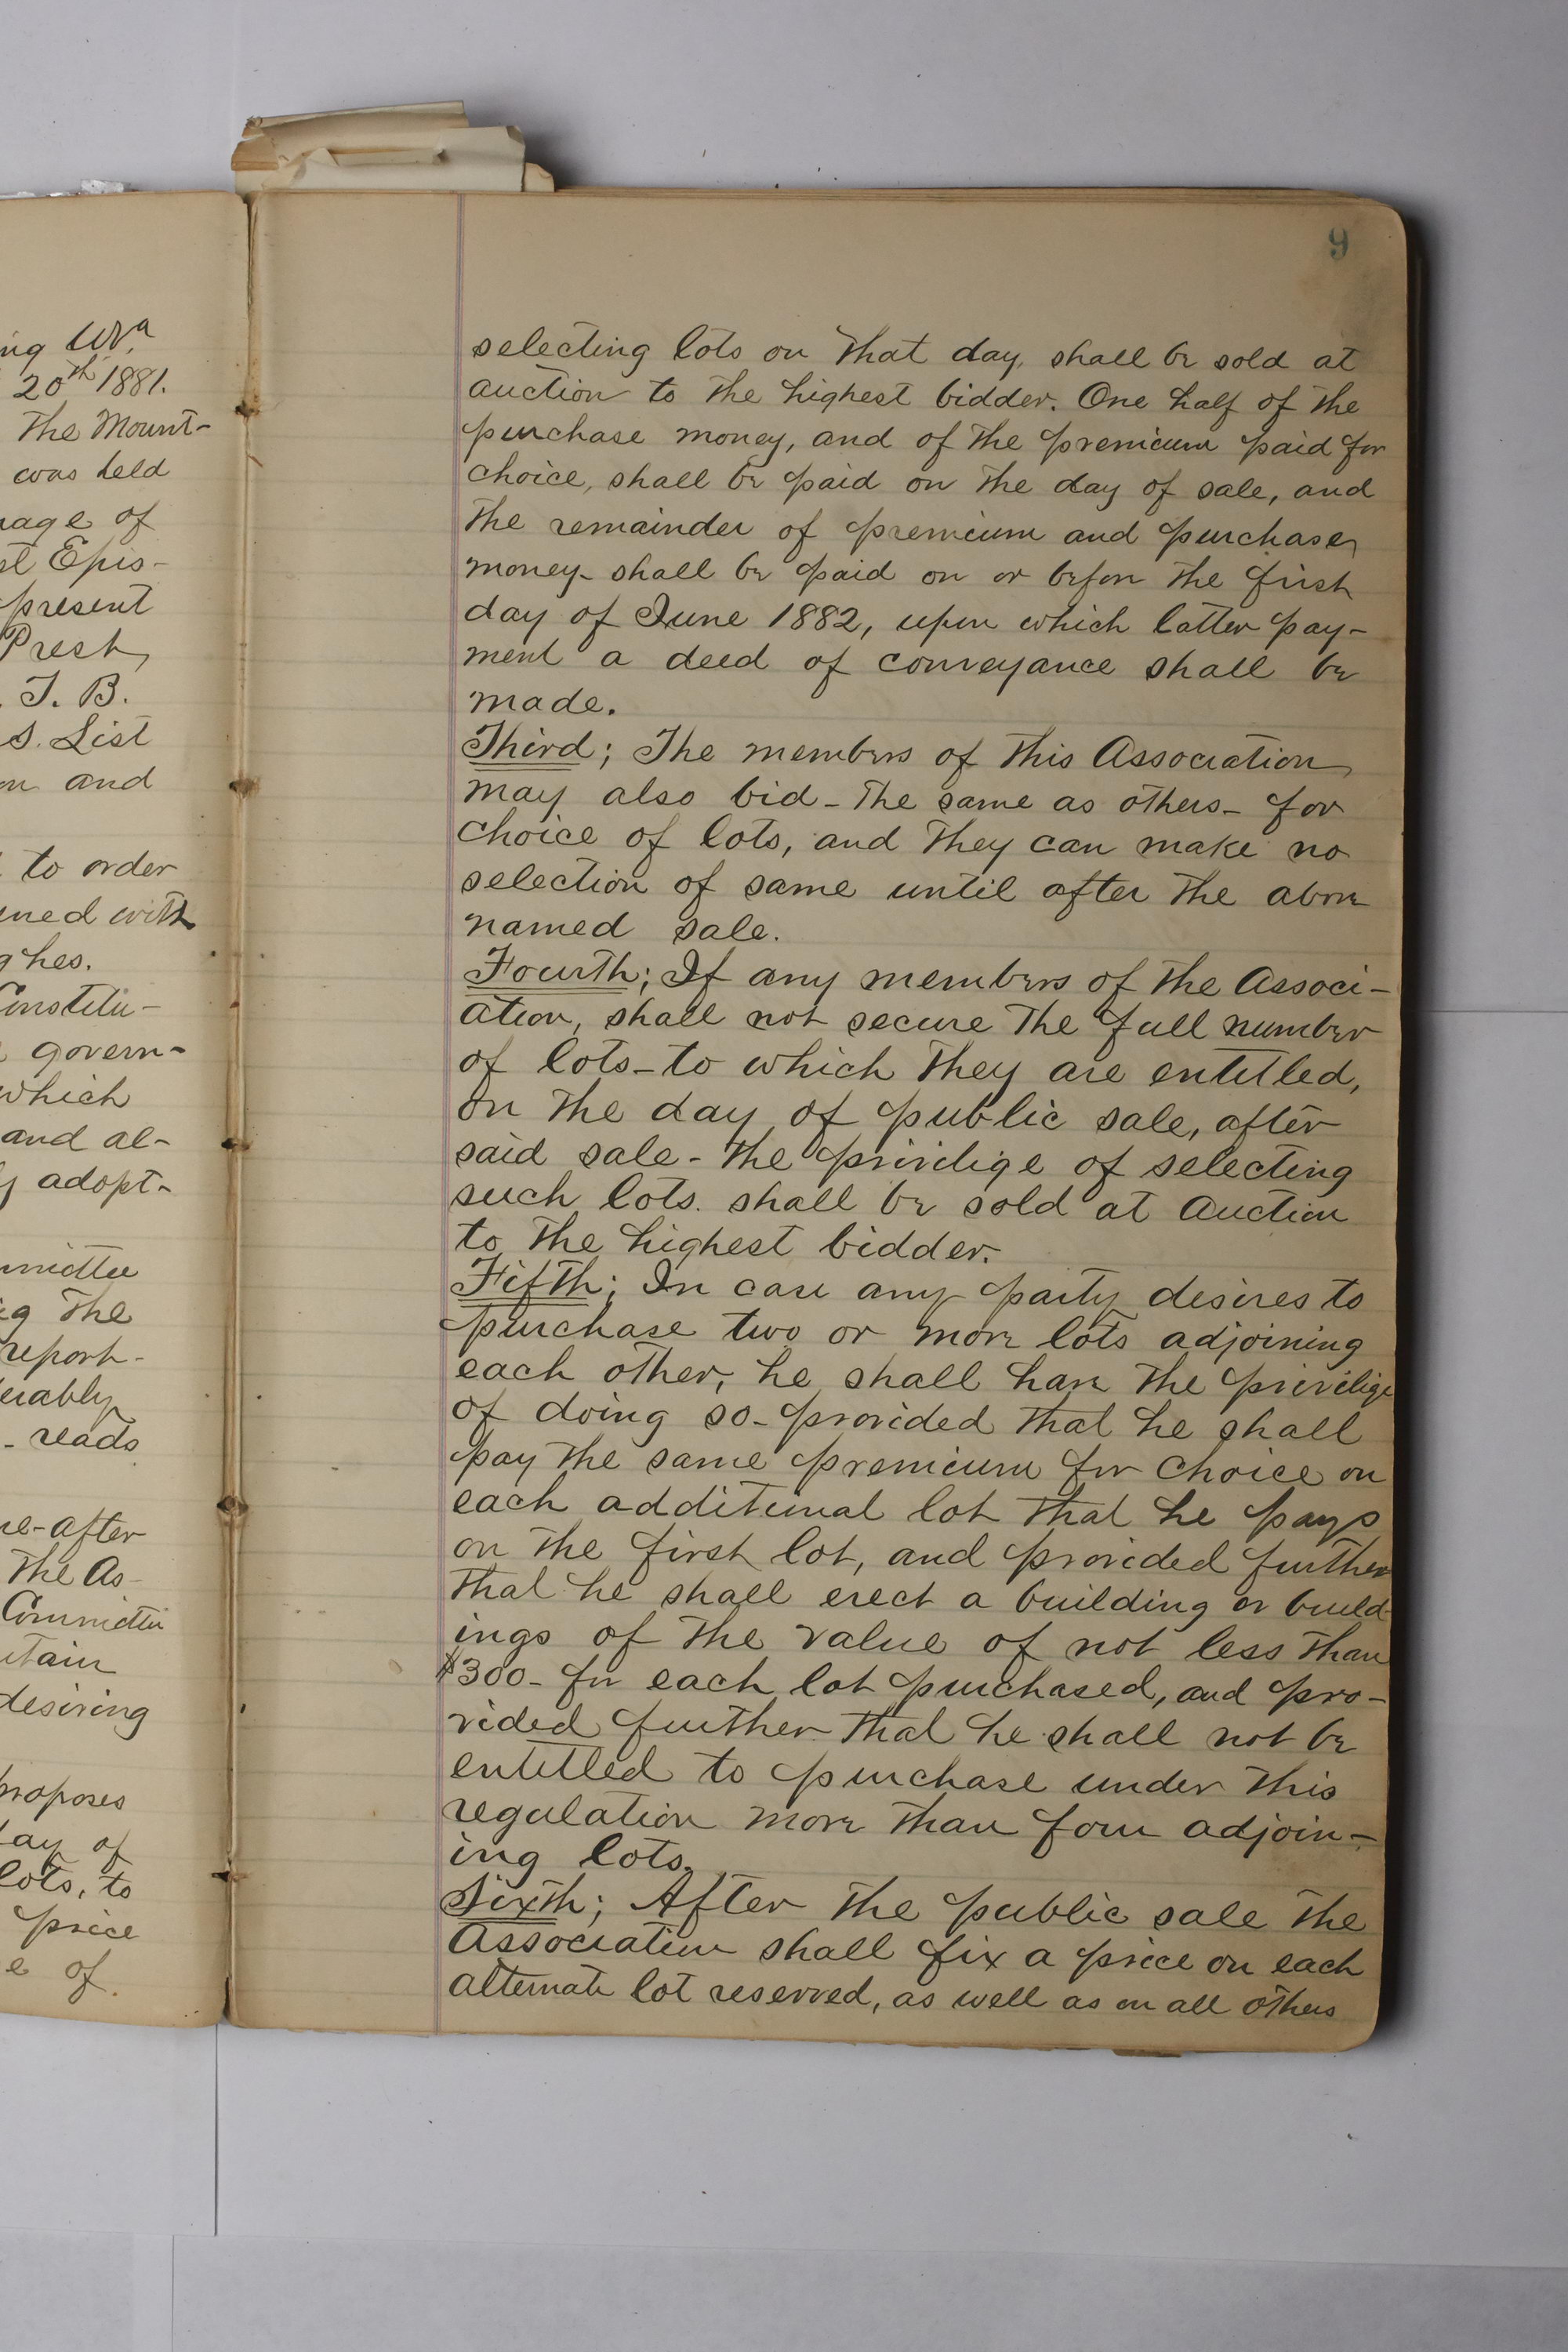 ng W.Va
20th 1881.
The Mount-
was held
age of
st Epis-
present
Prest,
. J. B.
S. List
on and
to order
ned with
ghes.
Constitu-
govern-
which
and al-
y adopt-
mmittee
ng the
report-
erably
- reads
re-after
The As-
Committee
tain
desiring
proposes
ay of
lots, to
price
e of.
9
selecting lots on that day, shall be sold at
auction to the highest bidder. One half of the
purchase money, and of the premium paid for
choice, shall be paid on the day of sale, and
the remainder of premium and purchase
money- shall be paid on or before the first
day of June 1882, upon which latter pay-
ment a deed of conveyance shall be
made.
Third; The members of this Association
may also bid - the same as others - for
choice of lots, and they can make no
selection of same until after the above
named sale.
Fourth; If any members of the Associ-
ation, shall not secure the full number
of lots - to which they are entitled,
on the day of public sale, after
said sale - the privilige of selecting
such lots. shall be sold at Auction
to the highest bidder.
Fifth; In case any party desires to
purchase two or more lots adjoining
each other, he shall have the privilige
of doing so - provided that he shall
pay the same premium for choice on
each additional lot that he pays
on the first lot, and provided further
that he shall erect a building or build-
ings of the value of not less than
$300- for each lot purchased, and pro-
vided further that he shall not be
entitled to purchase under this
regulation more than four adjoin-
ing lots.
Sixth; After the public sale the
Association shall fix a price on each
alternate lot reserved, as well as on all others